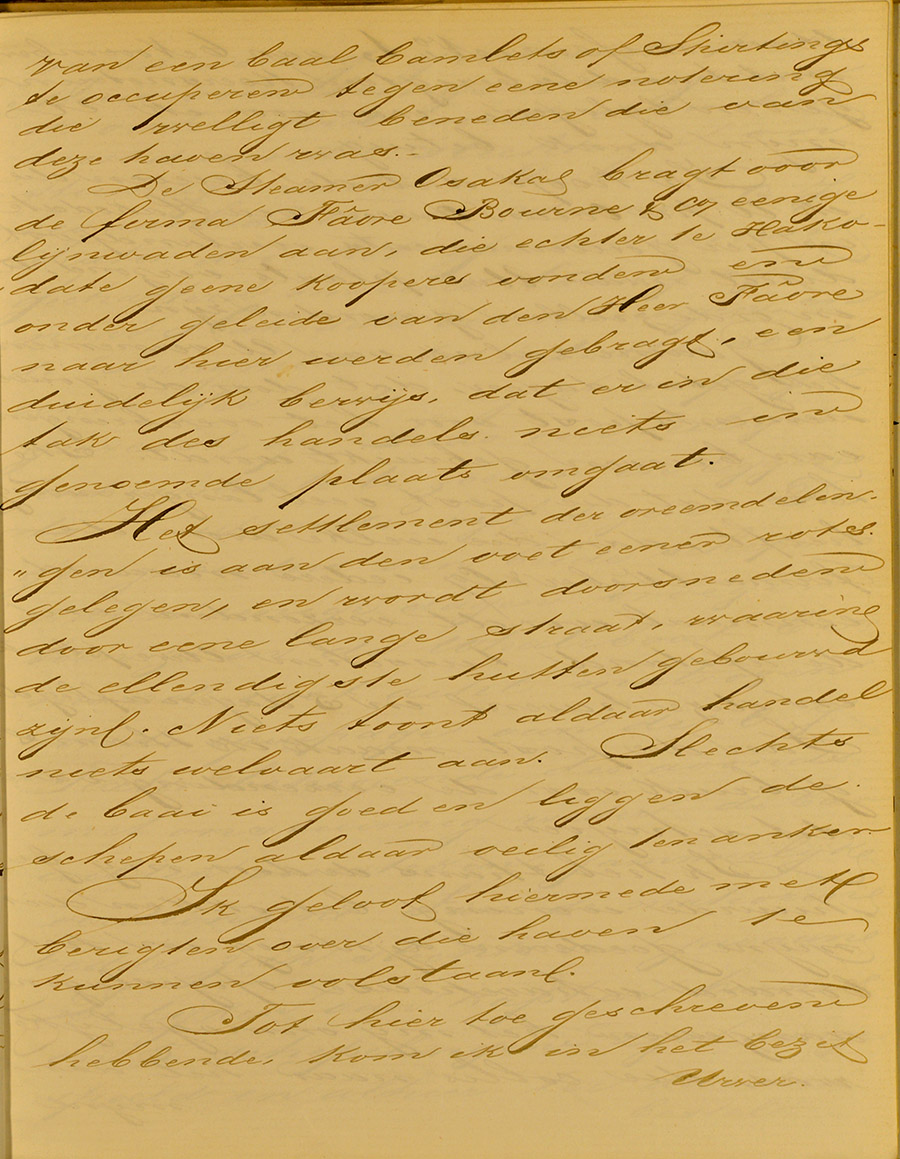 van een baal Camlets of Shirtings
te occuperen tegen eene notering
die welligt beneden die van
deze haven was.-
De Steamer Osaka bragt voor
de firma Fâvre Bourne & Co, eenige
lijnwaden aan, die echter te Hako-
date geene koopers vonden en
onder geleide van den Heer Fâvre
naar hier werden gebragt, een
duidelijk bewijs, dat er in die
tak des handels niets in
genoemde plaats omgaat.
Het settlement der vreemdelin-
"gen is aan den voet eener rots
gelegen, en wordt doorsneden
door eene lange straat, waarin
de ellendigste hutten gebouwd
zijn. Niets toont aldaar handel
niets welvaart aan. Slechts
de baai is goed en liggen de
schepen aldaar veilig ten anker
Ik geloof hiermede met
berigten over die haven te
kunnen volstaan.
Tot hier toe geschreven
hebbende, kom ik in het bezit
Uwer.